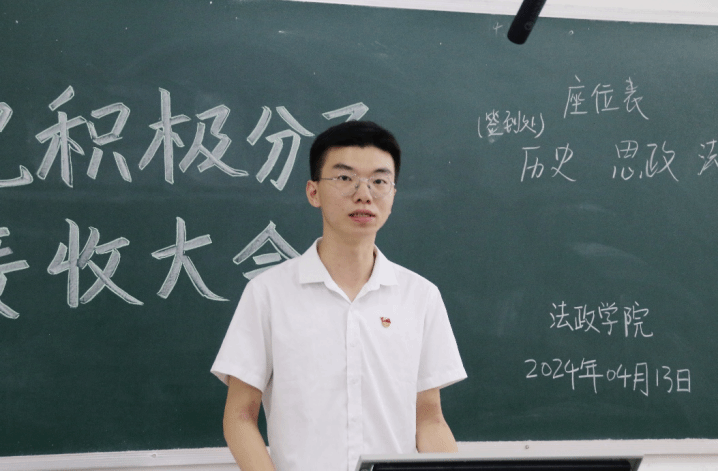 积极分子
接收大会
座位表
(签到处)
历史 思政 法
法政学院
2024年04月13日